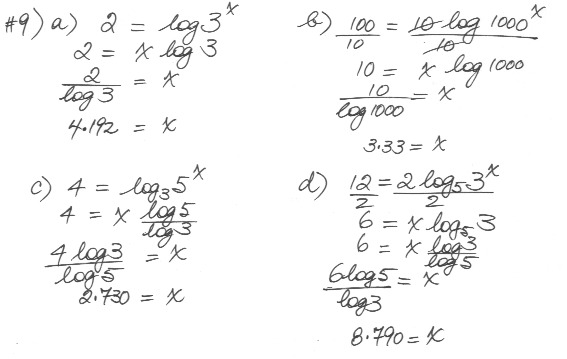 #9) a) 2 = log 3^x
2 = x log 3
2/log 3 = x
4.192 = x
b) 100/10 = 10 log 1000^x/10
10 = x log 1000
10/log 1000 = x
3.33 = x
c) 4 = log₃ 5^x
4 = x log 5/log 3
4 log 3/log 5 = x
2.730 = x
d) 12/2 = 2 log₅ 3^x/2
6 = x log₅ 3
6 = x log 3/log 5
6 log 5/log 3 = x
8.790 = x